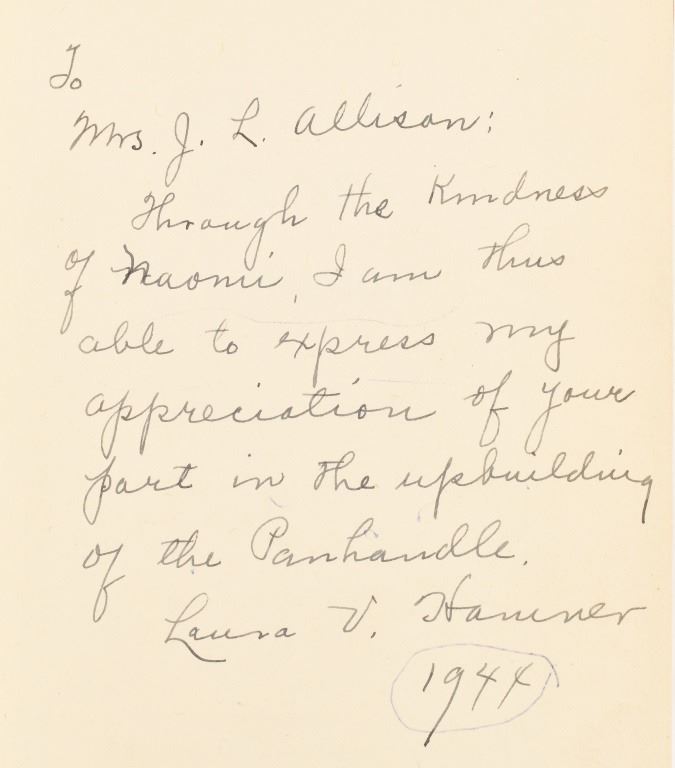 To
Mrs. J. L. Allison:
Through the Kindness
of Naomi, I am thus
able to express my
appreciation of your
part in the upbuilding
of the Panhandle.
Laura V. Hamner
1944